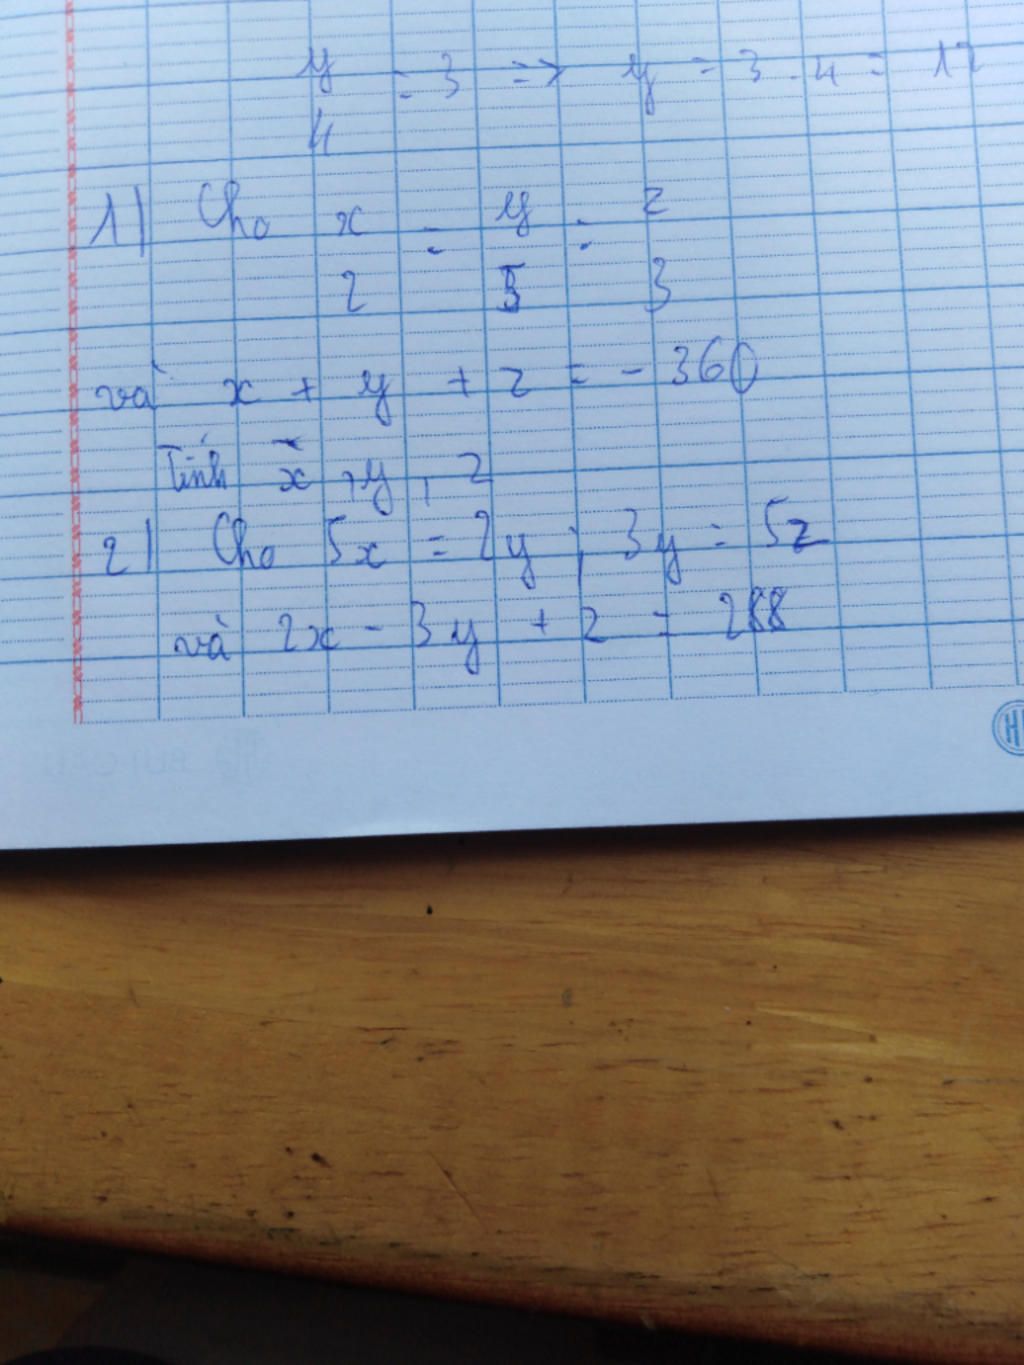 y = 3 => y = 3 . 4 = 12
4
1) Cho x = y = z
2 5 3
và x + y + z = - 360
Tính x, y, z
2) Cho 5x = 2y ; 3y = 5z
và 2x - 3y + z = 288